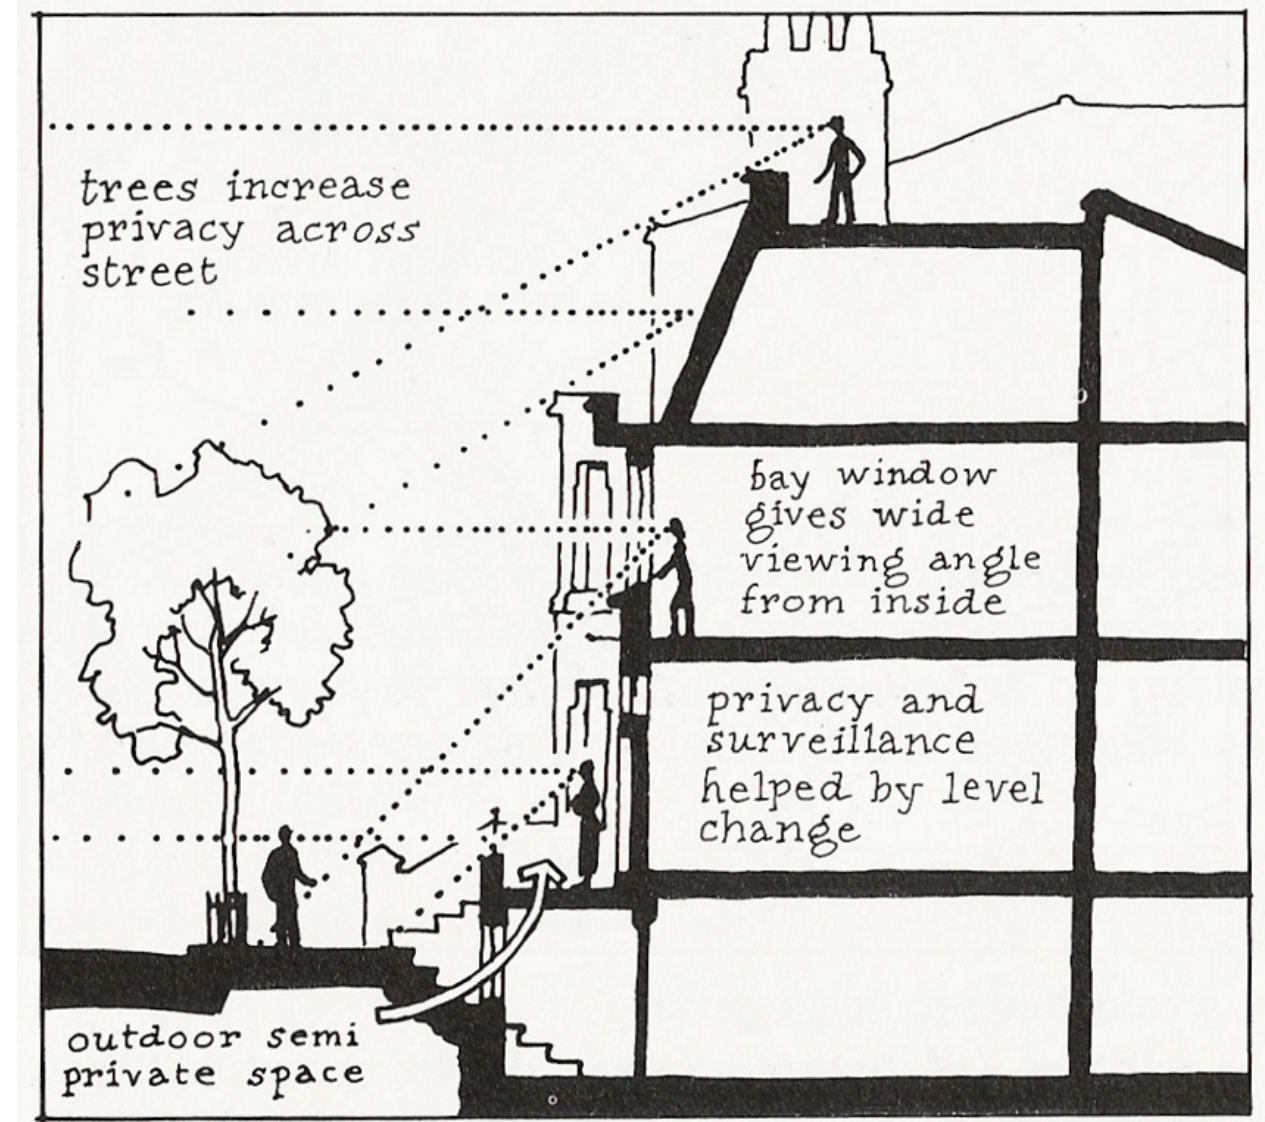 trees increase
privacy across
street
bay window
gives wide
viewing angle
from inside
privacy and
surveillance
helped by level
change
outdoor semi
private space